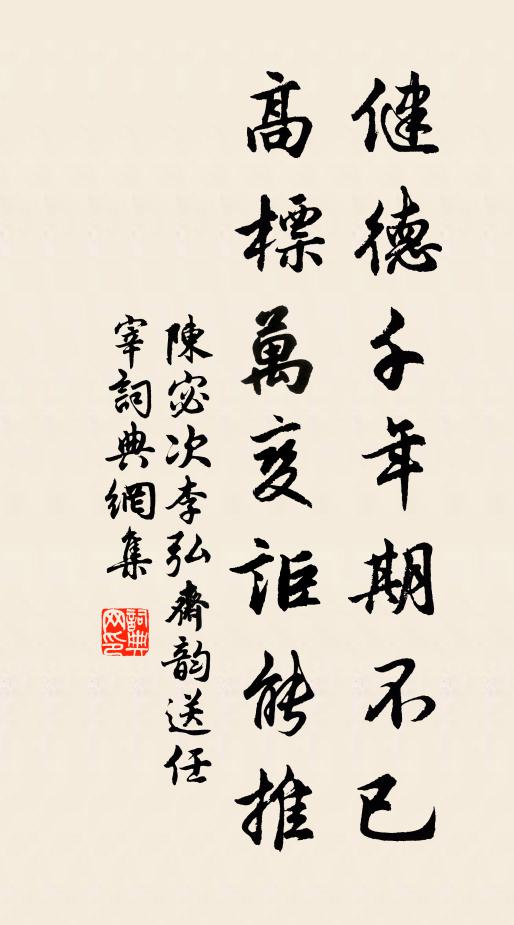 健德千年期不已
高標萬变詎能推
陳宓次李弘齋韵送任
宰詞典網集
詞典
网印